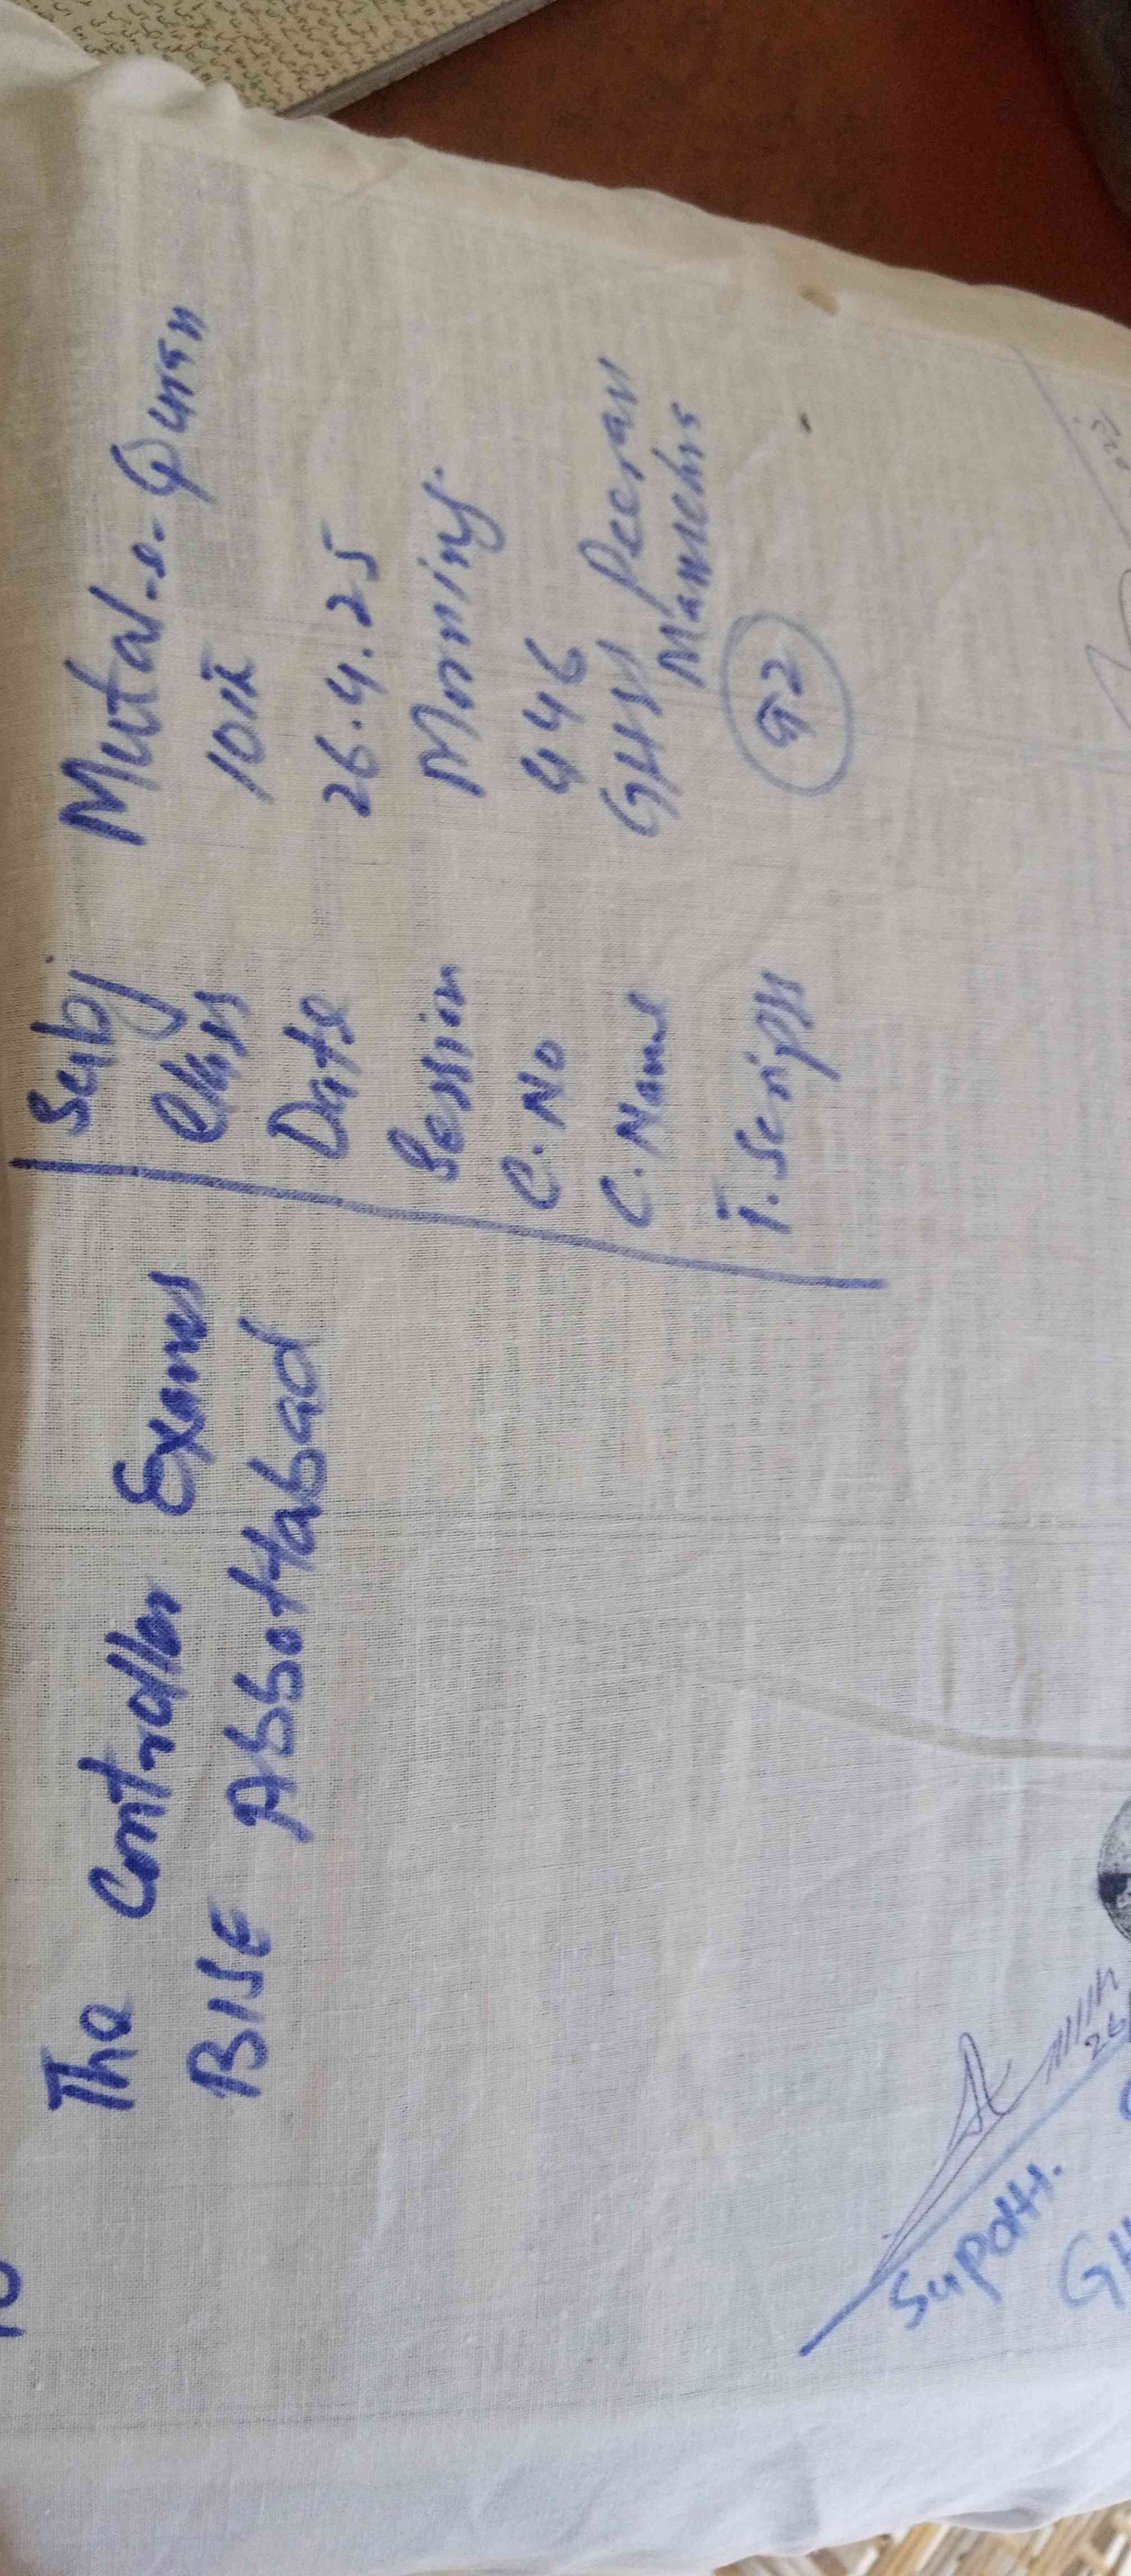 To
The Controller Exams
BISE Abbottabad
Subj Mutal-e-Quran
Class 10th
Date 26.4.25
Session Morning
C.No 446
C.Name GHSS Peeran
Mansehra
T.Scripts 92
Supdtt.